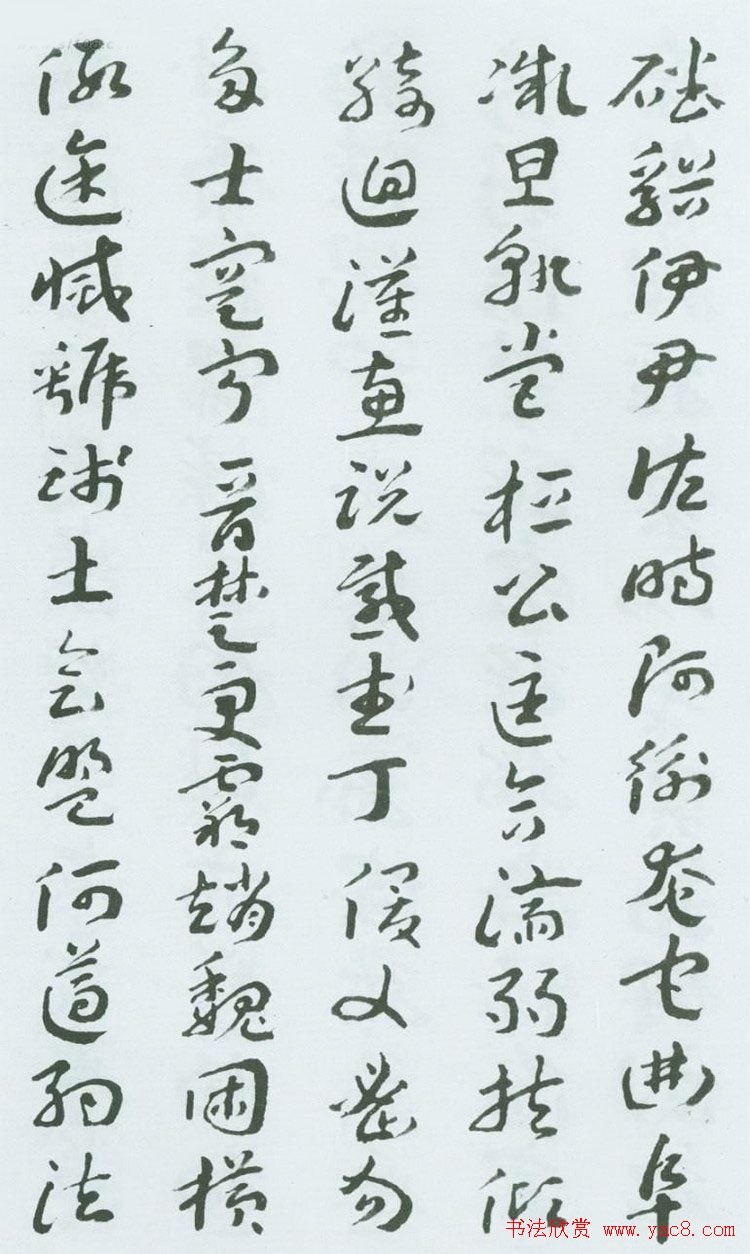 磻谿伊尹佐時阿衡奄宅曲阜
微旦孰營桓公匡合濟弱扶傾
綺迴漢惠說感武丁俊乂密勿
多士寔寧晉楚更霸趙魏困橫
假途滅虢踐土會盟何遵約法
书法欣赏 www.yac8.com